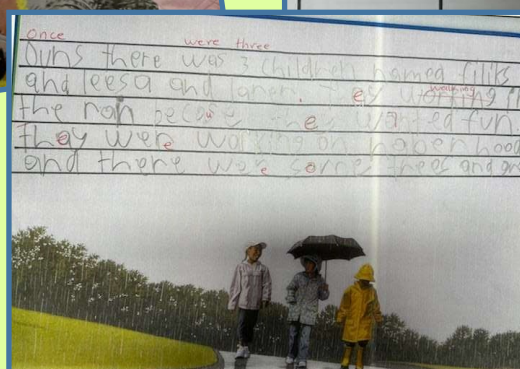 once were three
Ouns there was 3 children named filiks
and leesa and laneri. They working in
the rain because they wanted fun
they were working on naberhood
and there were some trees and gra